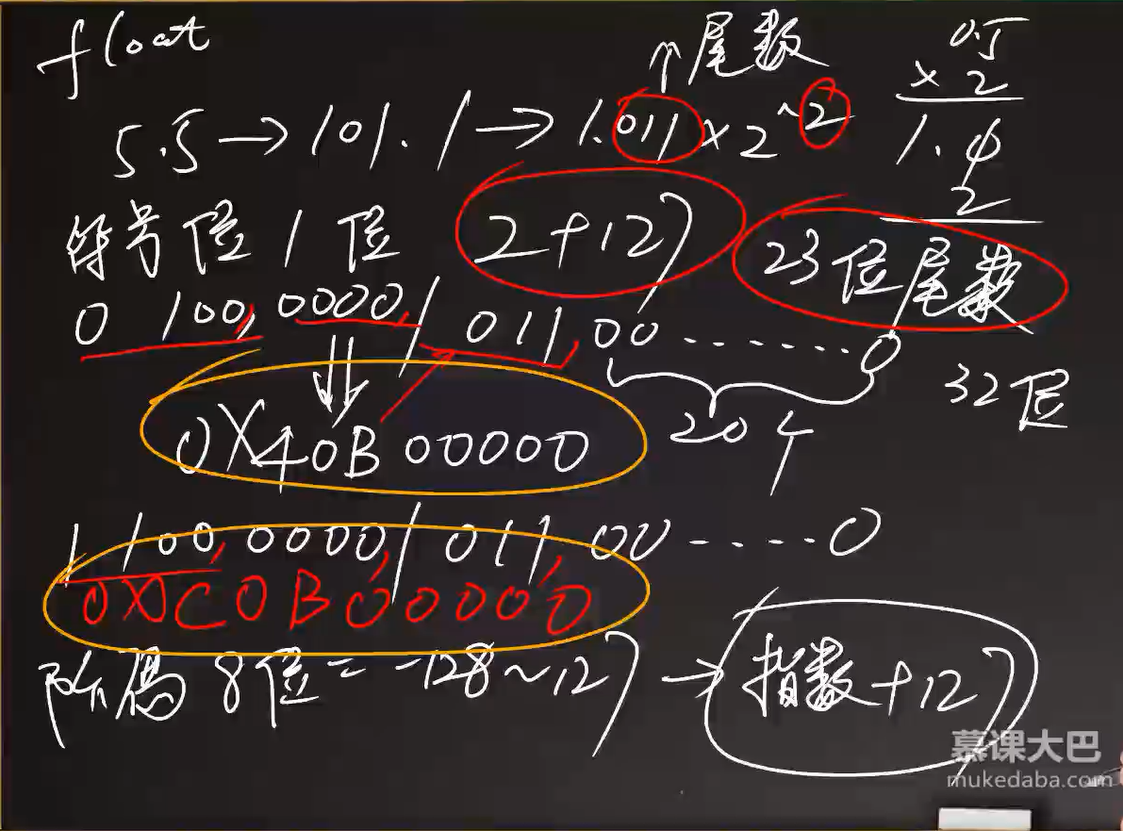 float
↑尾数
0.5
×2
5.5→101.1→1.011×2^2
1.0
2
符号位1位
2+127
23位尾数
0 100,0000,|011,00......0
32位
0X40B00000
20个
1 100,0000,|011,00-....0
0XC0B00000
阶码8位=-128~127→指数+127
慕课大巴
mukedaba.com